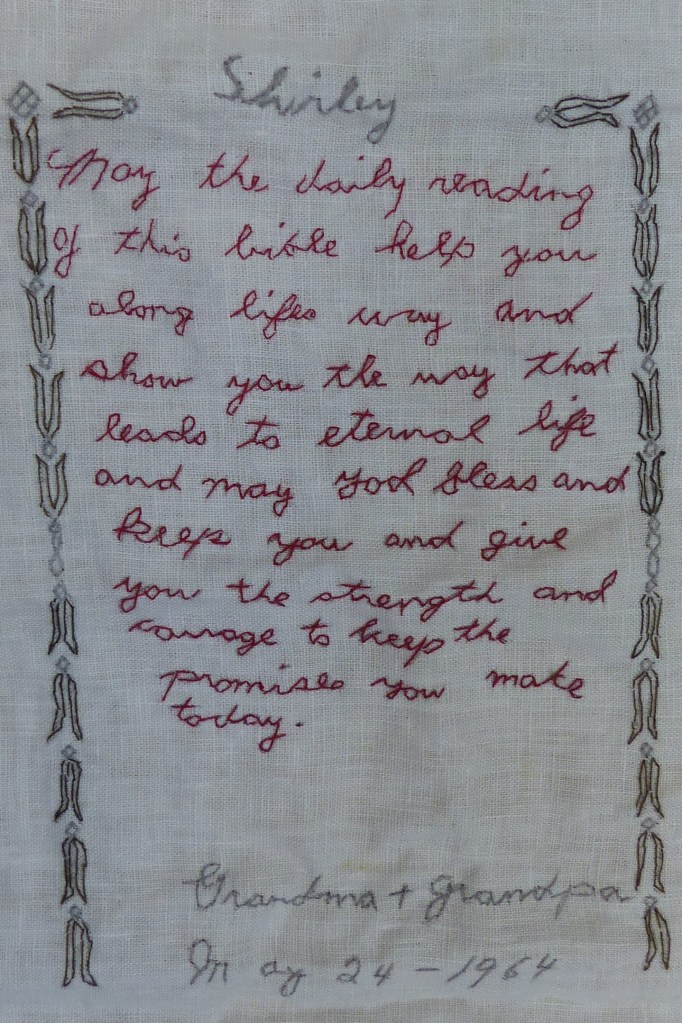 Shirley
May the daily reading
of this bible help you
along lifes way and
show you the way that
leads to eternal life
and may God bless and
keep you and give
you the strength and
courage to keep the
promises you make
today.
Grandma + Grandpa
May 24 - 1964